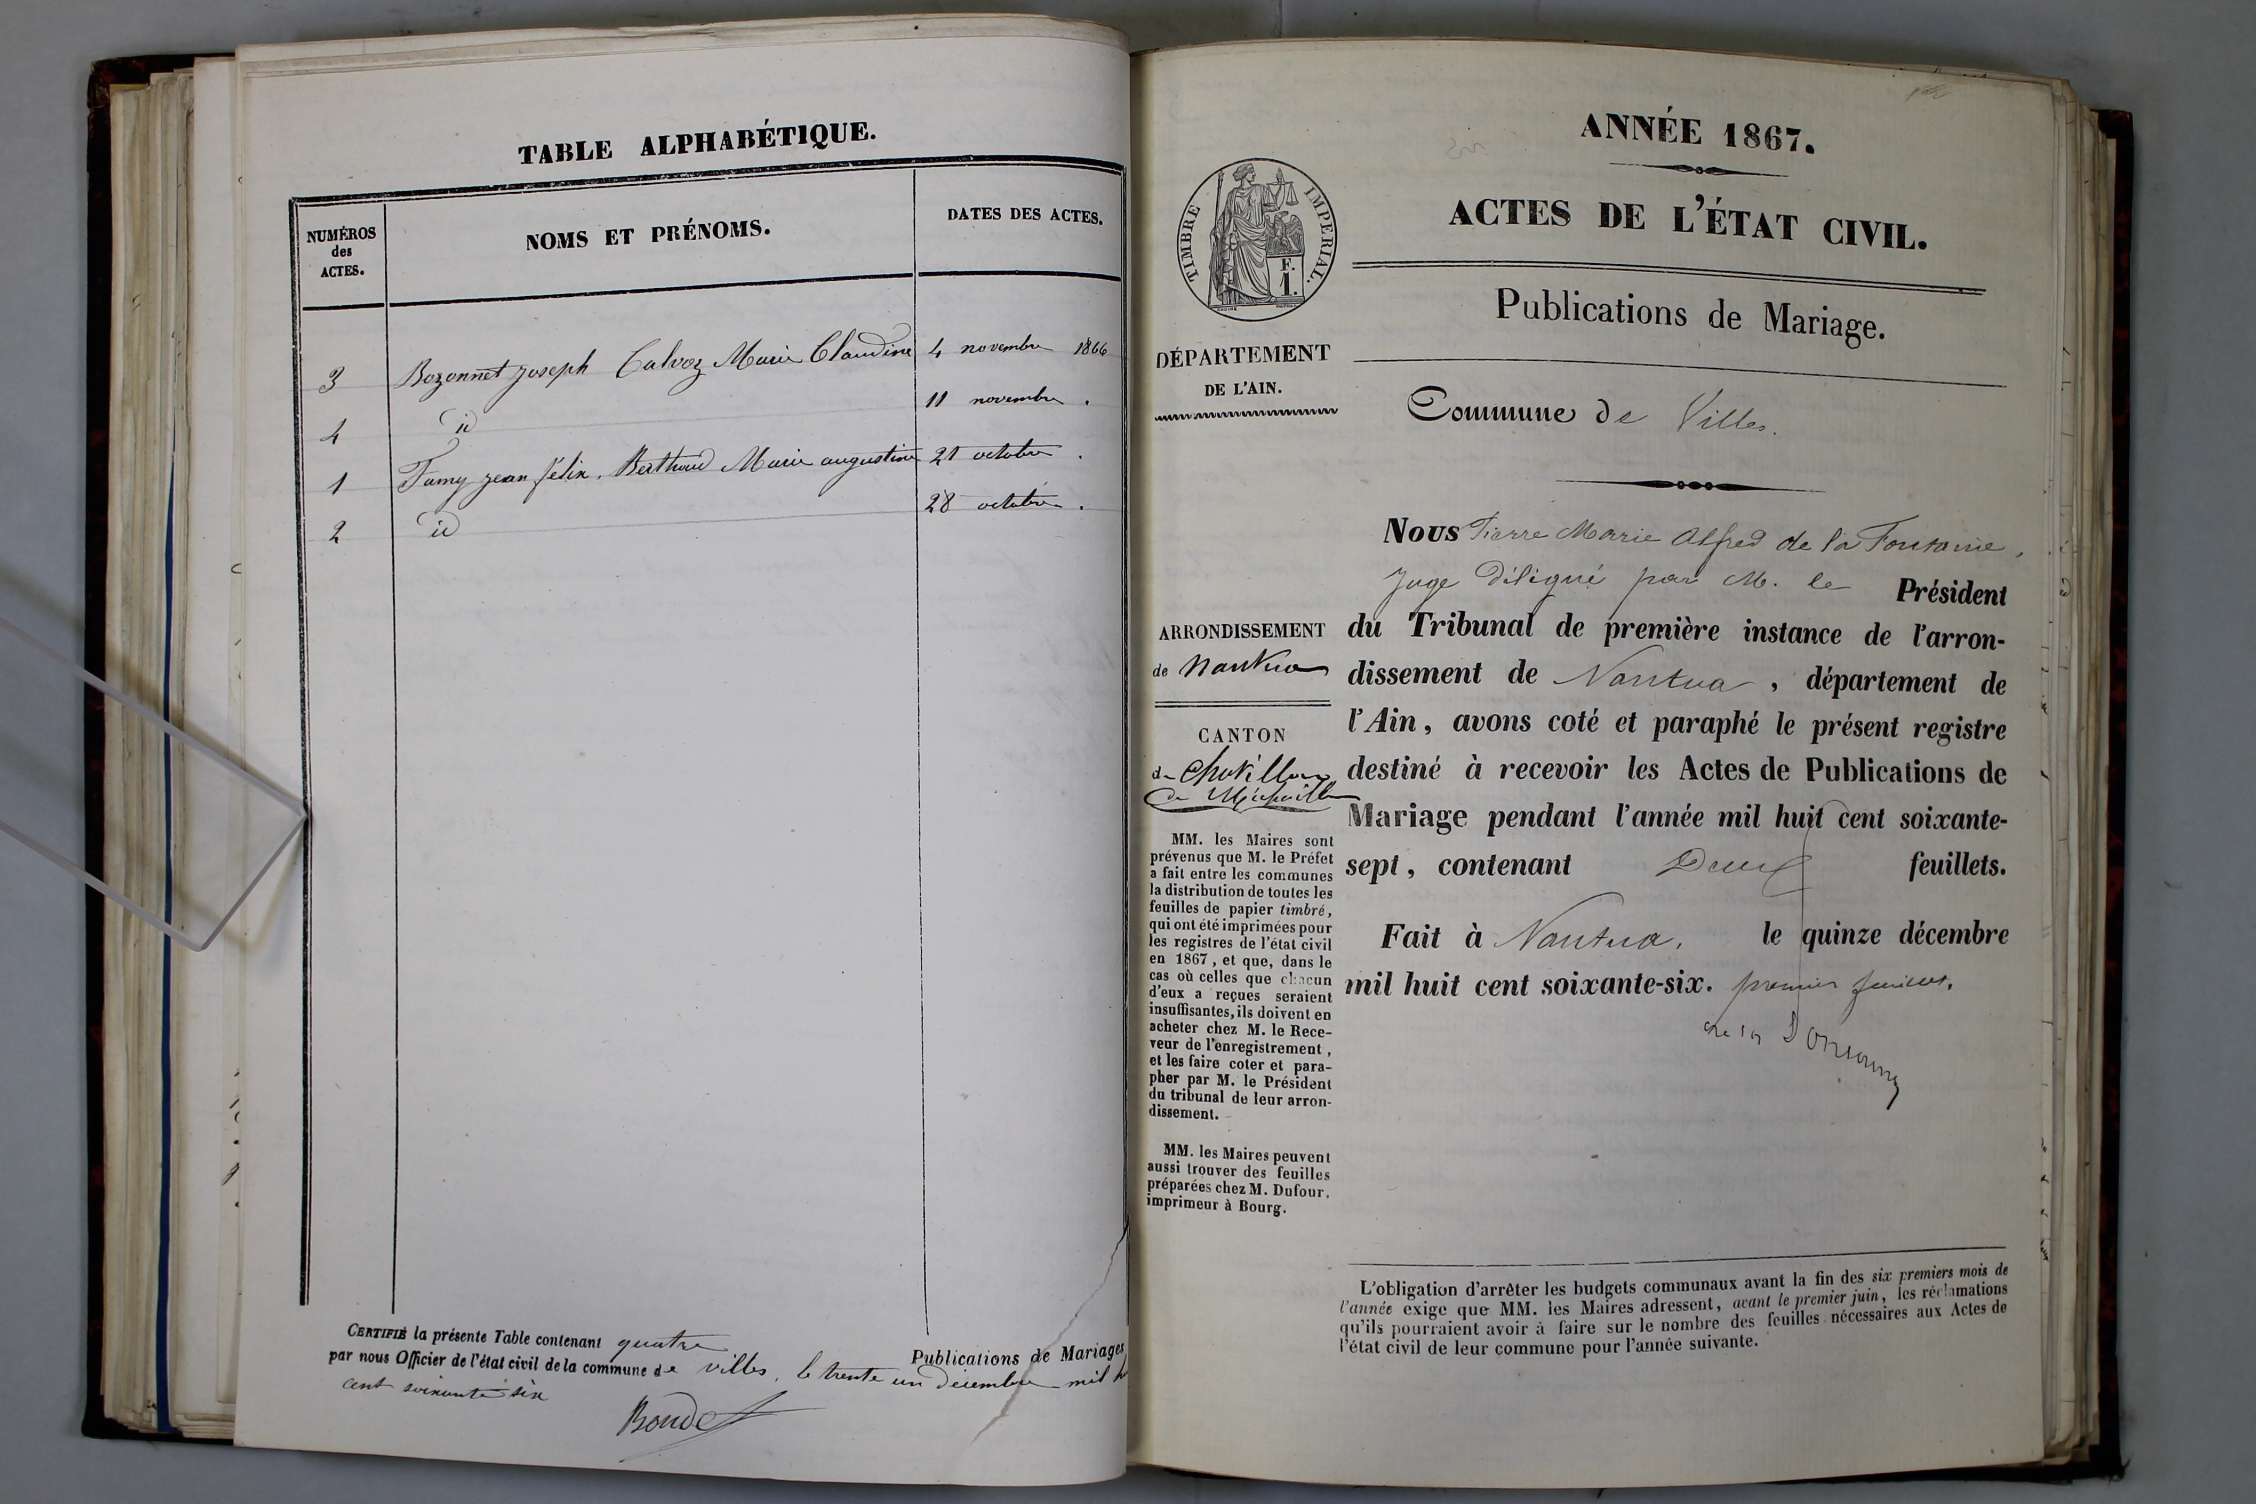 TABLE ALPHABÉTIQUE.
NUMÉROS
des
ACTES.
NOMS ET PRÉNOMS.
DATES DES ACTES.
3 Bozonnet Joseph Calvoz Marie Claudine 4 novembre 1866
4 id 11 novembre .
1 Famy jean félix . Berthoud Marie augustine 21 octobre .
2 id 28 octobre .
CERTIFIÉ la présente Table contenant quatre Publications de Mariages
par nous Officier de l'état civil de la commune de villes, le trente un decembre mil
cent soixante six
Boudet
ANNÉE 1867.
ACTES DE L'ÉTAT CIVIL.
Publications de Mariage.
TIMBRE IMPERIAL.
F.
1.
DÉPARTEMENT
DE L'AIN.
Commune de Villes.
Nous Pierre Marie Alfred de la Fontaine,
Juge délégué par M. le Président
du Tribunal de première instance de l'arron-
dissement de Nantua, département de
l'Ain, avons coté et paraphé le présent registre
destiné à recevoir les Actes de Publications de
Mariage pendant l'année mil huit cent soixante-
sept, contenant Deux feuillets.
Fait à Nantua, le quinze décembre
mil huit cent soixante-six. premier feuillet.
ARRONDISSEMENT
de Nantua
CANTON
de Chatillon
de Michaille
MM. les Maires sont
prévenus que M. le Préfet
a fait entre les communes
la distribution de toutes les
feuilles de papier timbré,
qui ont été imprimées pour
les registres de l'état civil
en 1867, et que, dans le
cas où celles que chacun
d'eux a reçues seraient
insuffisantes, ils doivent en
acheter chez M. le Rece-
veur de l'enregistrement,
et les faire coter et para-
pher par M. le Président
du tribunal de leur arron-
dissement.
MM. les Maires peuvent
aussi trouver des feuilles
préparées chez M. Dufour,
imprimeur à Bourg.
L'obligation d'arrêter les budgets communaux avant la fin des six premiers mois de
l'année exige que MM. les Maires adressent, avant le premier juin, les réclamations
qu'ils pourraient avoir à faire sur le nombre des feuilles nécessaires aux Actes de
l'état civil de leur commune pour l'année suivante.